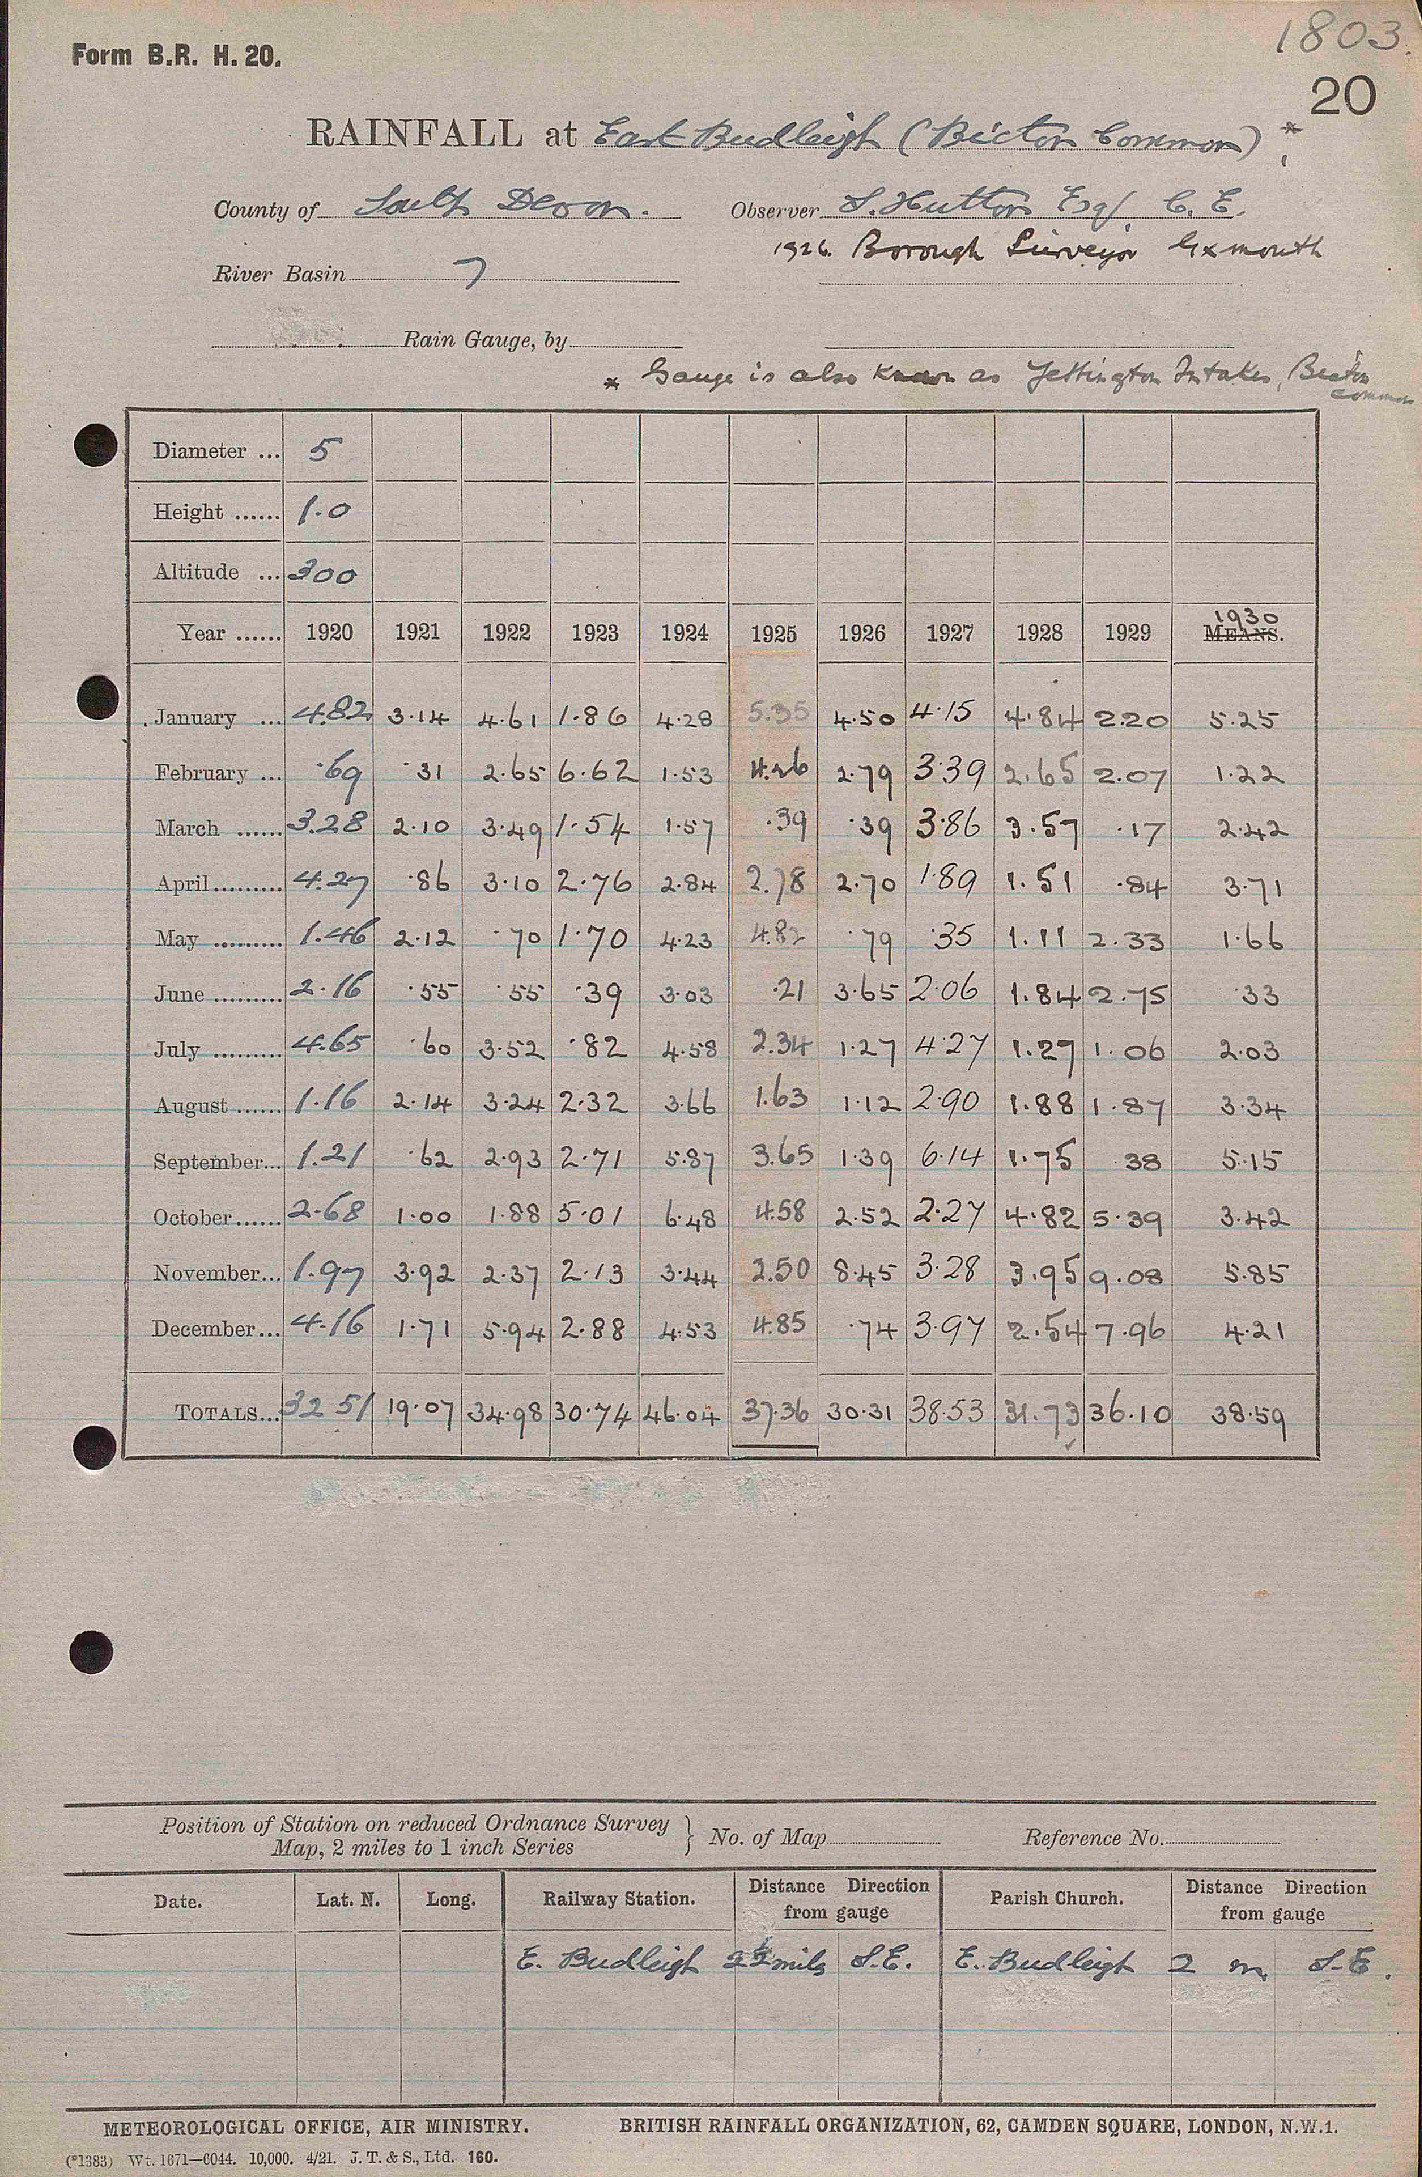 1803.
Form B.R. H. 20.
20
RAINFALL at East Budleigh (Bicton Common) *
County of South Devon. Observer S. Hutton Esq. C.E.
1926. Borough Surveyor Exmouth
River Basin 7
Rain Gauge, by
* Gauge is also known as Yettington Intakes, Bicton
common
Diameter ... 5
Height ...... 1.0
Altitude ... 300
1930
Year ...... 1920 1921 1922 1923 1924 1925 1926 1927 1928 1929 MEANS.
January ... 4.82 3.14 4.61 1.86 4.28 5.35 4.50 4.15 4.84 2.20 5.25
February ... .69 .31 2.65 6.62 1.53 4.26 2.79 3.39 2.65 2.07 1.22
March ...... 3.28 2.10 3.49 1.54 1.57 .39 .39 3.86 3.57 .17 2.42
April ......... 4.27 .86 3.10 2.76 2.84 2.78 2.70 1.89 1.51 .84 3.71
May ......... 1.46 2.12 .70 1.70 4.23 4.82 .79 .35 1.11 2.33 1.66
June ......... 2.16 .55 .55 .39 3.03 .21 3.65 2.06 1.84 2.75 .33
July ......... 4.65 .60 3.52 .82 4.58 2.34 1.27 4.27 1.27 1.06 2.03
August ...... 1.16 2.14 3.24 2.32 3.66 1.63 1.12 2.90 1.88 1.87 3.34
September... 1.21 .62 2.93 2.71 5.87 3.65 1.39 6.14 1.75 .38 5.15
October...... 2.68 1.00 1.88 5.01 6.48 4.58 2.52 2.27 4.82 5.39 3.42
November... 1.97 3.92 2.37 2.13 3.44 2.50 8.45 3.28 3.95 9.08 5.85
December... 4.16 1.71 5.94 2.88 4.53 4.85 .74 3.97 2.54 7.96 4.21
TOTALS... 32 51 19.07 34.98 30.74 46.04 37.36 30.31 38.53 31.73 36.10 38.59
Position of Station on reduced Ordnance Survey
Map, 2 miles to 1 inch Series } No. of Map Reference No.
Date. Lat. N. Long. Railway Station. Distance Direction from gauge Parish Church. Distance Direction from gauge
E. Budleigh 2½ mils S.E. E. Budleigh 2 m S.E.
METEOROLOGICAL OFFICE, AIR MINISTRY. BRITISH RAINFALL ORGANIZATION, 62, CAMDEN SQUARE, LONDON, N.W.1.
(*1383) Wt. 1671—6044. 10,000. 4/21. J. T. & S., Ltd. 160.